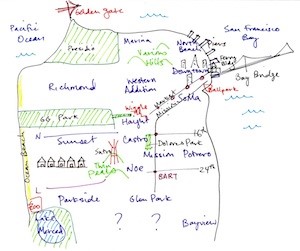 Golden Gate
Pacific
Ocean
San Francisco
Bay
Presidio
Marina
North
Beach
Piers
Various
Hills
Ferry
Bldg
Downtown
Bay Bridge
Richmond
Western
Addition
Market
Mission
SOMA
Ballpark
GG Park
Haight
Ocean Beach
N
Sunset
Castro
16th
Dolores Park
Sutro
Mission
Potrero
Twin
Peaks
Noe
24th
BART
L
Parkside
Glen Park
Zoo
Lake
Merced
?
?
Bayview